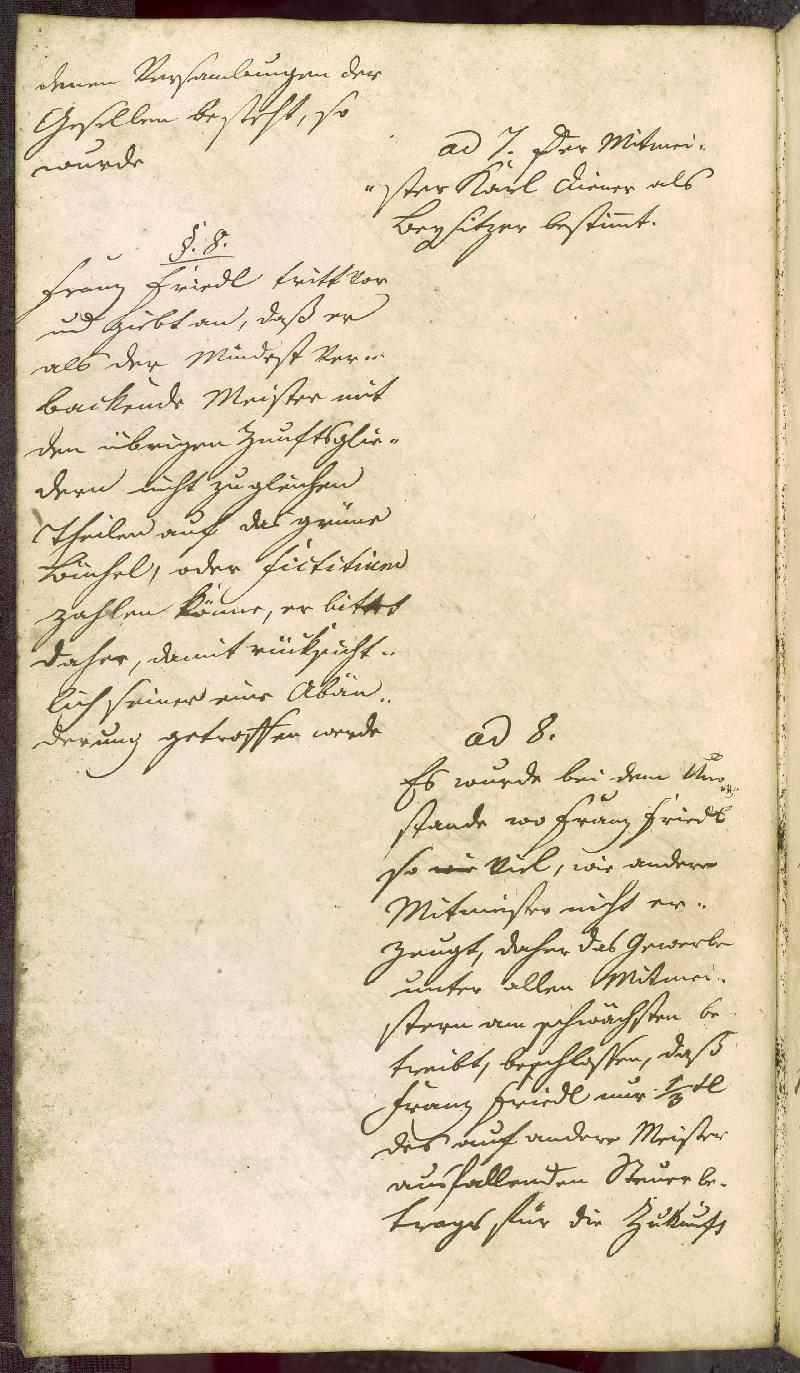 denen Versamlungen der
Gesellen besteht, so
wurde
ad 7. Der Mitmei-
"ster Karl Diener als
Beysitzer bestimt.
§. 8.
Franz Friedl tritt vor
und giebt an, daß er
als der Mindest Ver-
backende Meister mit
den übrigen Zunftsglie-
dern nicht zu gleichen
Theilen auf das grüne
Büchel, oder Fictitium
zahlen könne, er bittet
daher, damit rücksicht-
lich seiner eine Abän-
derung getroffen werde
ad 8.
Es wurde bei dem Um-
stande wo Franz Friedl
so wie viel, wie andere
Mitmeister nicht er-
zeugt, daher das Gewerbe
unter allen Mitmei-
stern am schwächsten be-
treibt, beschlossen, daß
Franz Friedl nur 1/3 tl
des auf andere Meister
ausfallenden Steuerbe-
trags für die Zukunft